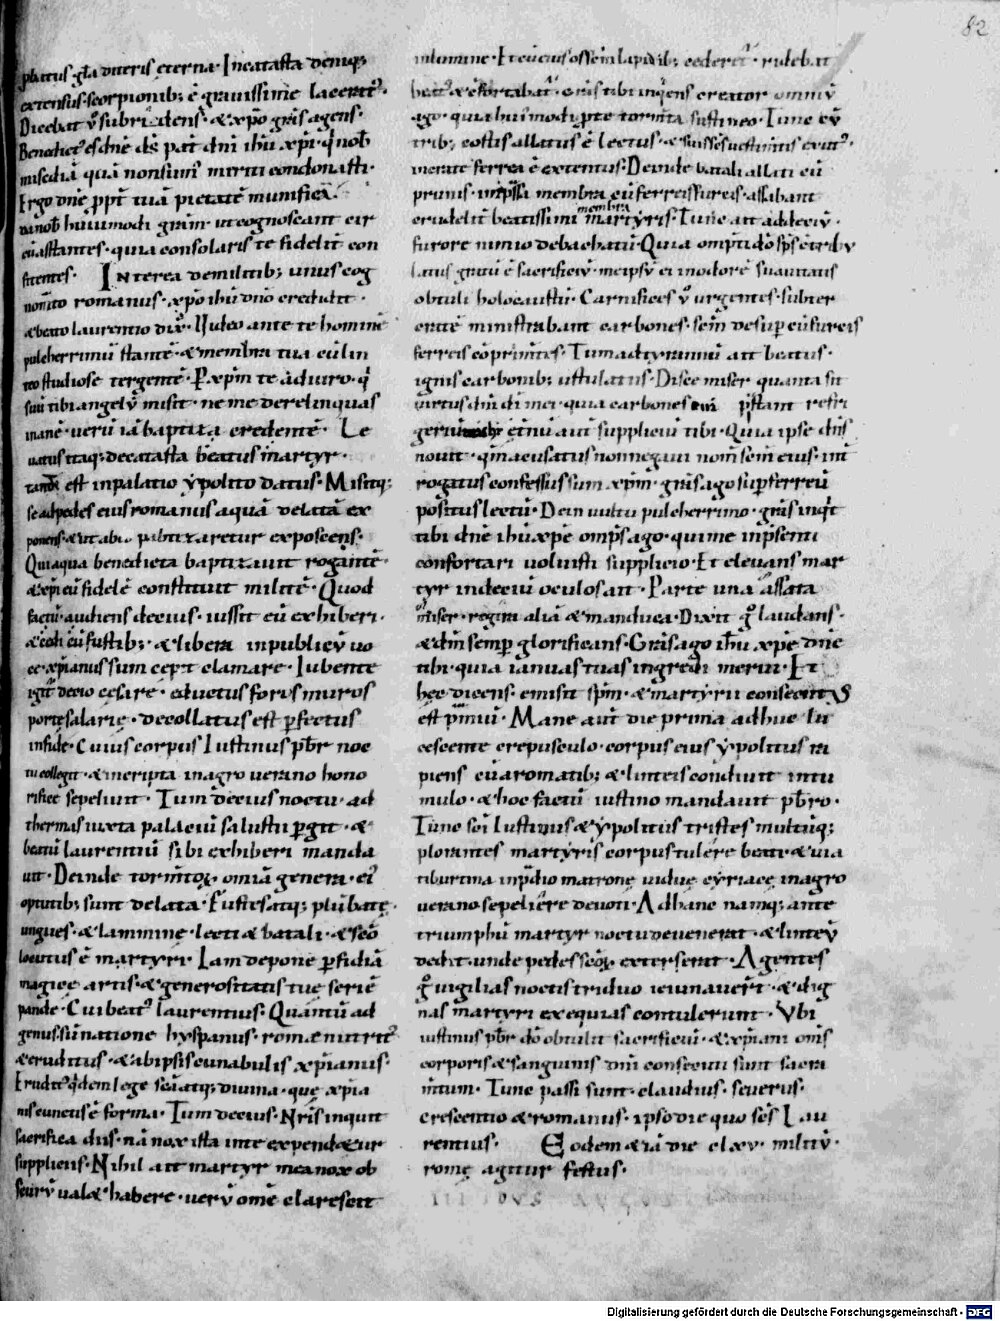 82
plietus gła diteris eterna. Incatasta deniq;
extensus. scorpionib; ē grauissime lacerat᷒.
Dicebat v̄ subridens. & xp̄o gr̄as agens.
Benedict᷒ es dn̄e ds̄ pat̄ dn̄i ihū xp̄i. q̄ nob̄
misc̄diā quā non sum᷒ miriti condonasti.
Ergo dn̄e ꝓpt̄ tuā pietatē munificā.
da nob̄ huiusmodi gr̄am. ut cognoscant cir
cūastantes. quia consolaris te fidelit̄ con
fitentes. Interea de militib; unus cog
nom̄to romanus. xp̄o ihū dn̄o credidit.
& beato laurentio dix̄. Video ante te hominē
pulcherrimū stantē. & membra tua cū lin
teo studiose tergentē. P xp̄m te adiuro. q̄
suū tibi angelū misit. ne me derelinquas
inanē. verū iā baptiza credentē. Le
uatus itaq; de catasta beatus martyr.
est in palatio ypolito datus. Misitq;
se ad pedes eius romanus aquā delatā ex
ponens. & ut ab eo baptizaretur exposcens.
Qui aqua benedicta baptizauit rogantē.
& xp̄i eū fidelē constituit militē. Quod
factū audiens decius. iussit eū exhiberi.
& cedi eū fustib;. & libera in publicū uo
ce xp̄ianus sum cep̄it clamare. Iubente
igit᷒ decio cesare. eductus foris muros
portę salarię. decollatus est pfectus
in fide. Cuius corpus Iustinus pb̄r noc
tu collegit. & in cripta in agro uerano hono
rifice sepeliuit. Tum decius noctu. ad
thermas iuxta palaciū salustii pgit. &
beatū laurentiū sibi exhiberi manda
uit. Deinde torm̄toꝝ. omia genera. ei᷒
optutib; sunt delata. Fustes atq; plūbatę.
ungues. & lammine. lecti & batali. & sc̄o
locutus ē martyri. Iam depone pfidiā
magicę artis. & generositatis tuę seriē
pande. Cui beat᷒ laurentius. Quantū ad
genus. sū natione hyspanus. romae nutrit᷒
& eruditus. & ab ipsis cunabulis xp̄ianus.
Erudit᷒ q̄dem lege sc̄a atq; diuina. quę xp̄ia
nis cunctis ē forma. Tum decius. Nr̄is inquit
sacrifica diis. nā nox ista in te expendetur
suppliciis. Nihil ait martyr mea nox ob
scurū ualet habere. verū om̄e claresci̅t
in lumine. Et cū eius os sc̄m lapidib; cederet᷒. ridebat
beat᷒ & c̄fortabat᷒. gr̄as tibi inq̄ens creator omniū
ago. quia huiusmodi p te torm̄ta sustineo. Tunc cū
trib; costis allatus ē lectus. & suis sc̄s uestim̄tis exut᷒.
in crate ferrea ē extentus. Deinde batali allati cū
prunis. imp̄ssa membra cū ferreis furcis. assabant
crudelit̄ beatissimi membra martyris. Tunc ait ad deciū.
furore nimio debachatū. Quia omp̄ti dō sp̄s c̄tribu
latus gratū ē sacrificiū. me ipsū ei in odorē suauitatis
obtuli holocaustū. Carnifices v̄ urgentes. subter
cratē ministrabant carbones. sc̄m desup eū furcis
ferreis cōprim̄tes. Tum ad tyrannū ait beatus.
ignis carbonib; ustulatus. Disce miser quanta sit
uirtus dn̄i dī mei. quia carbones sui p̄stant refri
geriū mihi. et̄nū aut̄ suppliciū tibi. Quia ipse dn̄s
nouit. qm̄ accusatus non negaui nom̄ sc̄m eius. int̄
rogatus confessus sum xp̄m. gr̄as ago sup ferreū
positus lectū. Dein uultu pulcherrimo. gr̄as inq̄t
tibi dn̄e ihū xp̄e omp̄s ago. qui me in p̄senti
confortari uoluisti supplicio. Et eleuans mar
tyr in deciū oculos ait. Parte una assata
o miser. regira aliā & manduca. Dixit ḡ laudans.
& dm̄ semp glorificans. Gr̄as ago ihū xp̄e dn̄e
tibi. quia ianuas tuas ingredi merui. Et
hęc dicens. emisit sp̄m. & martyrii consecutus
est p̄miū. Mane aut̄ die prima adhuc lu
cescente crepusculo. corpus eius ypolitus ra
piens cū aromatib; & linteis condiuit in tu
mulo. & hoc factū iustino mandauit pb̄ro.
Tunc sc̄i Iustinus & ypolitus tristes multūq;
plorantes martyris corpus tulere beati. & uia
tiburtina in p̄dio matronę uiduę cyriacę in agro
uerano sepeliere deuoti. Ad hanc namq; ante
triumphū martyr noctu deuenerat. & linteū
dedit. unde pedes sc̄oꝝ exterserat. Agentes
ḡ uigilias noctis triduo ieiunauer̄t. & dig
nas martyri exequias contulerunt. Vbi
iustinus pb̄r dō obtulit sacrificiū. & xp̄iani om̄s
corporis & sanguinis dn̄i consecuti sunt sacra
m̄tum. Tunc passi sunt. claudius. seuerus.
crescentio & romanus. ipso die quo sc̄s Lau
rentius. Eodem & iā die clxv. militū.
romę agitur festus.
Digitalisierung gefördert durch die Deutsche Forschungsgemeinschaft - DFG